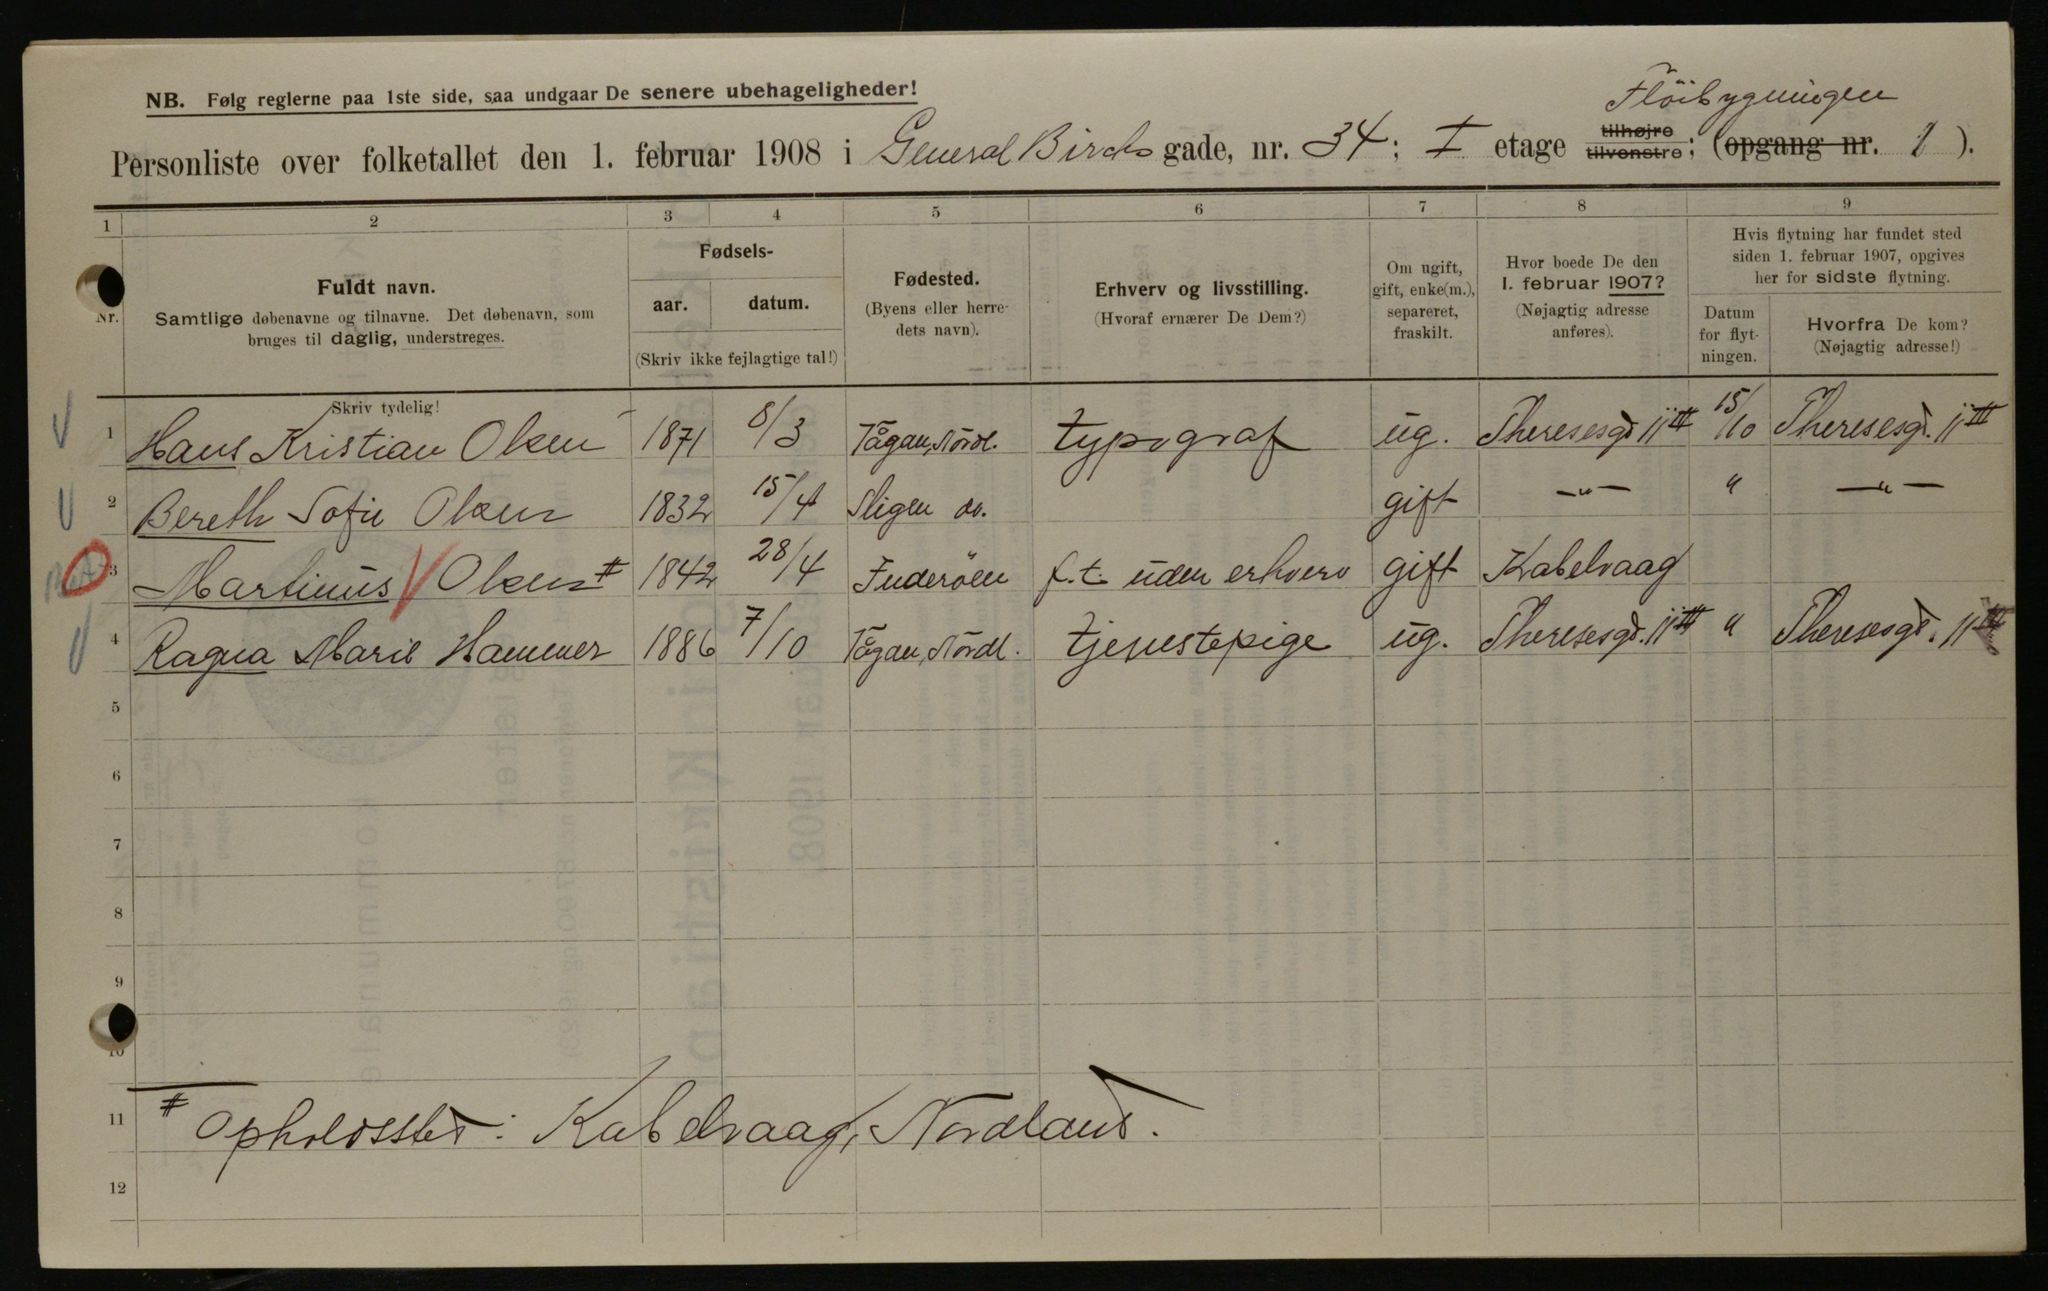 NB. Følg reglerne paa 1ste side, saa undgaar De senere ubehageligheder!
Flöibygningen
Personliste over folketallet den 1. februar 1908 i General Birchs gade, nr. 34; I etage tilhøjre tilvenstre; (opgang nr. 1).
1 2 3 4 5 6 7 8 9
Nr.
Fuldt navn.
Samtlige døbenavne og tilnavne. Det døbenavn, som
bruges til daglig, understreges.
Skriv tydelig!
Fødsels-
aar. datum.
(Skriv ikke fejlagtige tal!)
Fødested.
(Byens eller herre-
dets navn).
Erhverv og livsstilling.
(Hvoraf ernærer De Dem?)
Om ugift,
gift, enke(m.),
separeret,
fraskilt.
Hvor boede De den
1. februar 1907?
(Nøjagtig adresse
anføres).
Hvis flytning har fundet sted
siden 1. februar 1907, opgives
her for sidste flytning.
Datum
for flyt-
ningen.
Hvorfra De kom?
(Nøjagtig adresse!)
1 Hans Kristian Olsen 1871 8/3 Vågan, Nordl. typograf ug. Theresesgd 11 III 15/10 Theresesgd. 11 III
2 Bereth Sofie Olsen 1832 15/4 do. gift —"— " —"—
3 Martinus Olsen # 1842 28/4 Inderöen f.t. uden erhverv gift Kabelvaag
4 Ragna Marie Hammer 1886 7/10 Vågan, Nordl. tjenestepige ug. Theresesgd. 11 III " Theresesgd. 11 III
5
6
7
8
9
10
11 # Opholdssted: Kabelvaag, Nordland.
12